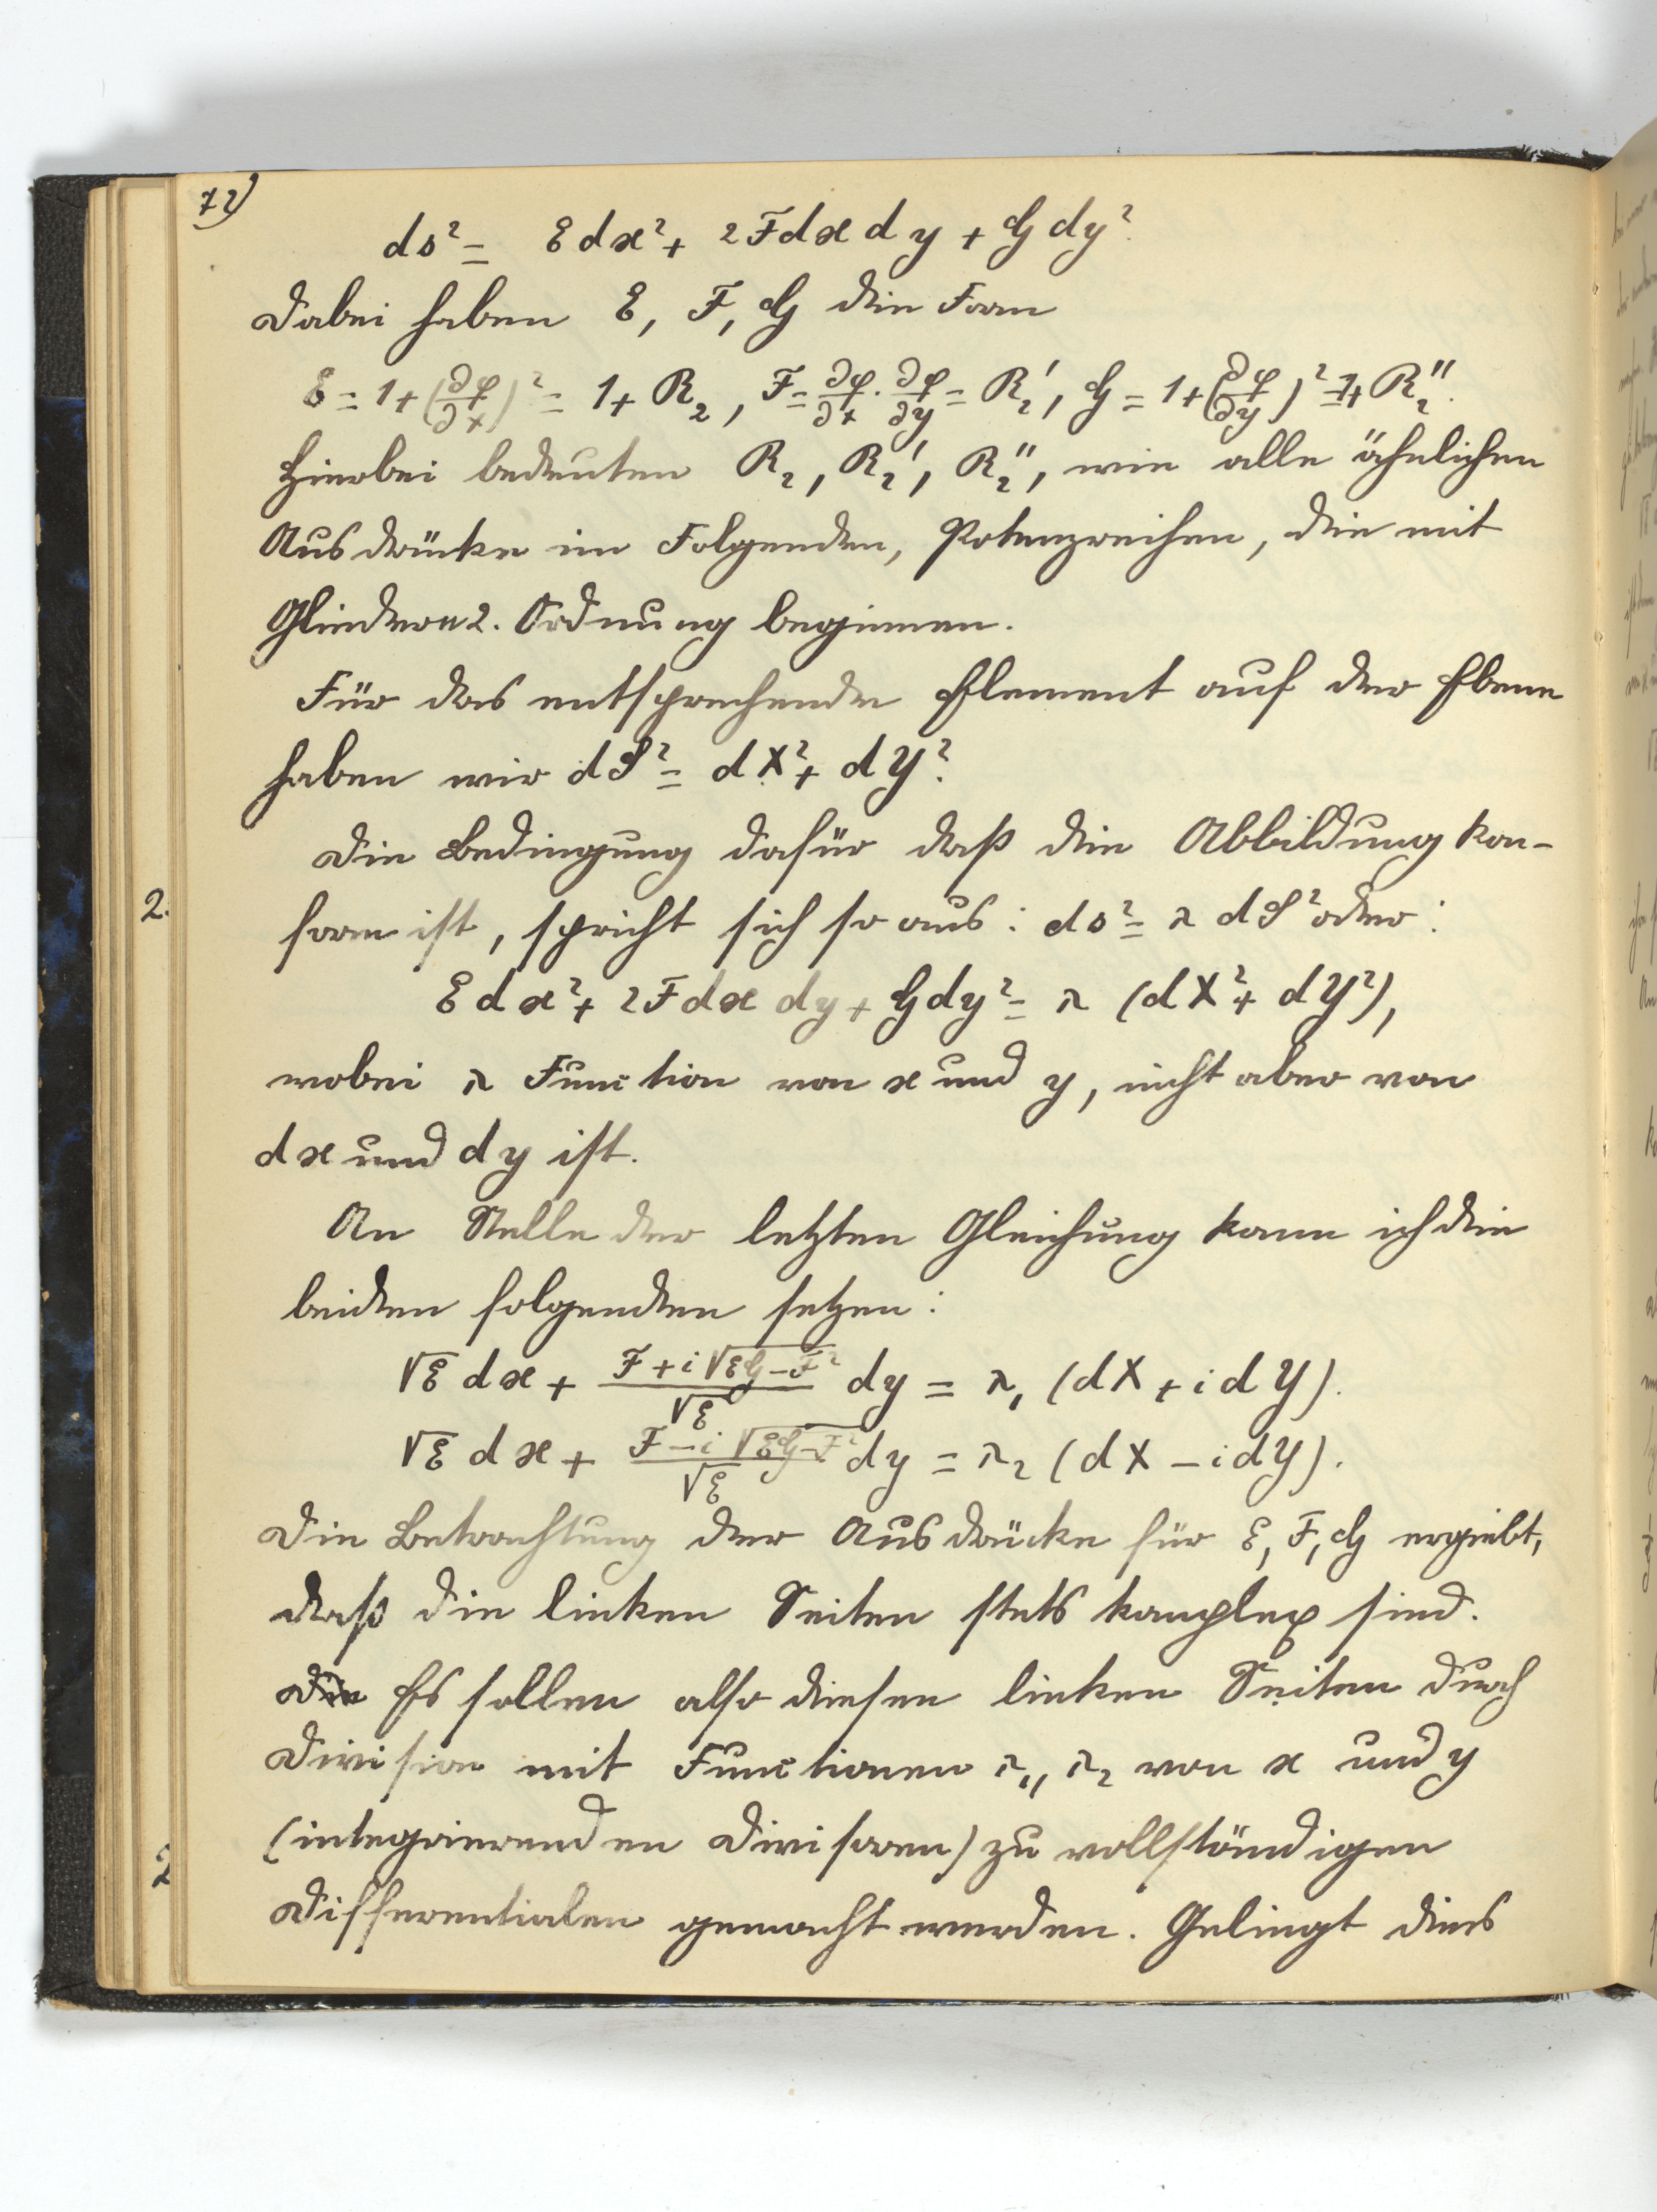 72)
ds² = E dx² + 2F dx dy + G dy².
Dabei haben E, F, G die Form
E = 1 + (∂φ/∂x)² = 1 + R₂, F = ∂φ/∂x · ∂φ/∂y = R₂', G = 1 + (∂φ/∂y)² = 1 + R₂''.
Hierbei bedeuten R₂, R₂', R₂'', wie alle ähnlichen
Ausdrücke im Folgenden, Potenzreihen, die mit
Gliedern 2. Ordnung beginnen.
Für das entsprechende Element auf der Ebene
haben wir dS² = dX² + dY².
Die Bedingung dafür daß die Abbildung kon-
2.
form ist, spricht sich so aus: ds² = λ dS² oder:
E dx² + 2F dx dy + G dy² = λ (dX² + dY²),
wobei λ Function von x und y, nicht aber von
dx und dy ist.
An Stelle der letzten Gleichung kann ich die
beiden folgenden setzen:
√E dx + (F + i √(EG − F²))/√E dy = λ₁ (dX + i dY).
√E dx + (F − i √(EG − F²))/√E dy = λ₂ (dX − i dY).
Die Betrachtung der Ausdrücke für E, F, G ergiebt,
daß die linken Seiten stets komplex sind.
Die Es sollen also diesen linken Seiten durch
Division mit Functionen λ₁, λ₂ von x und y
(integrierenden Divisoren) zu vollständigen
2
Differentialen gemacht werden. Gelingt dies